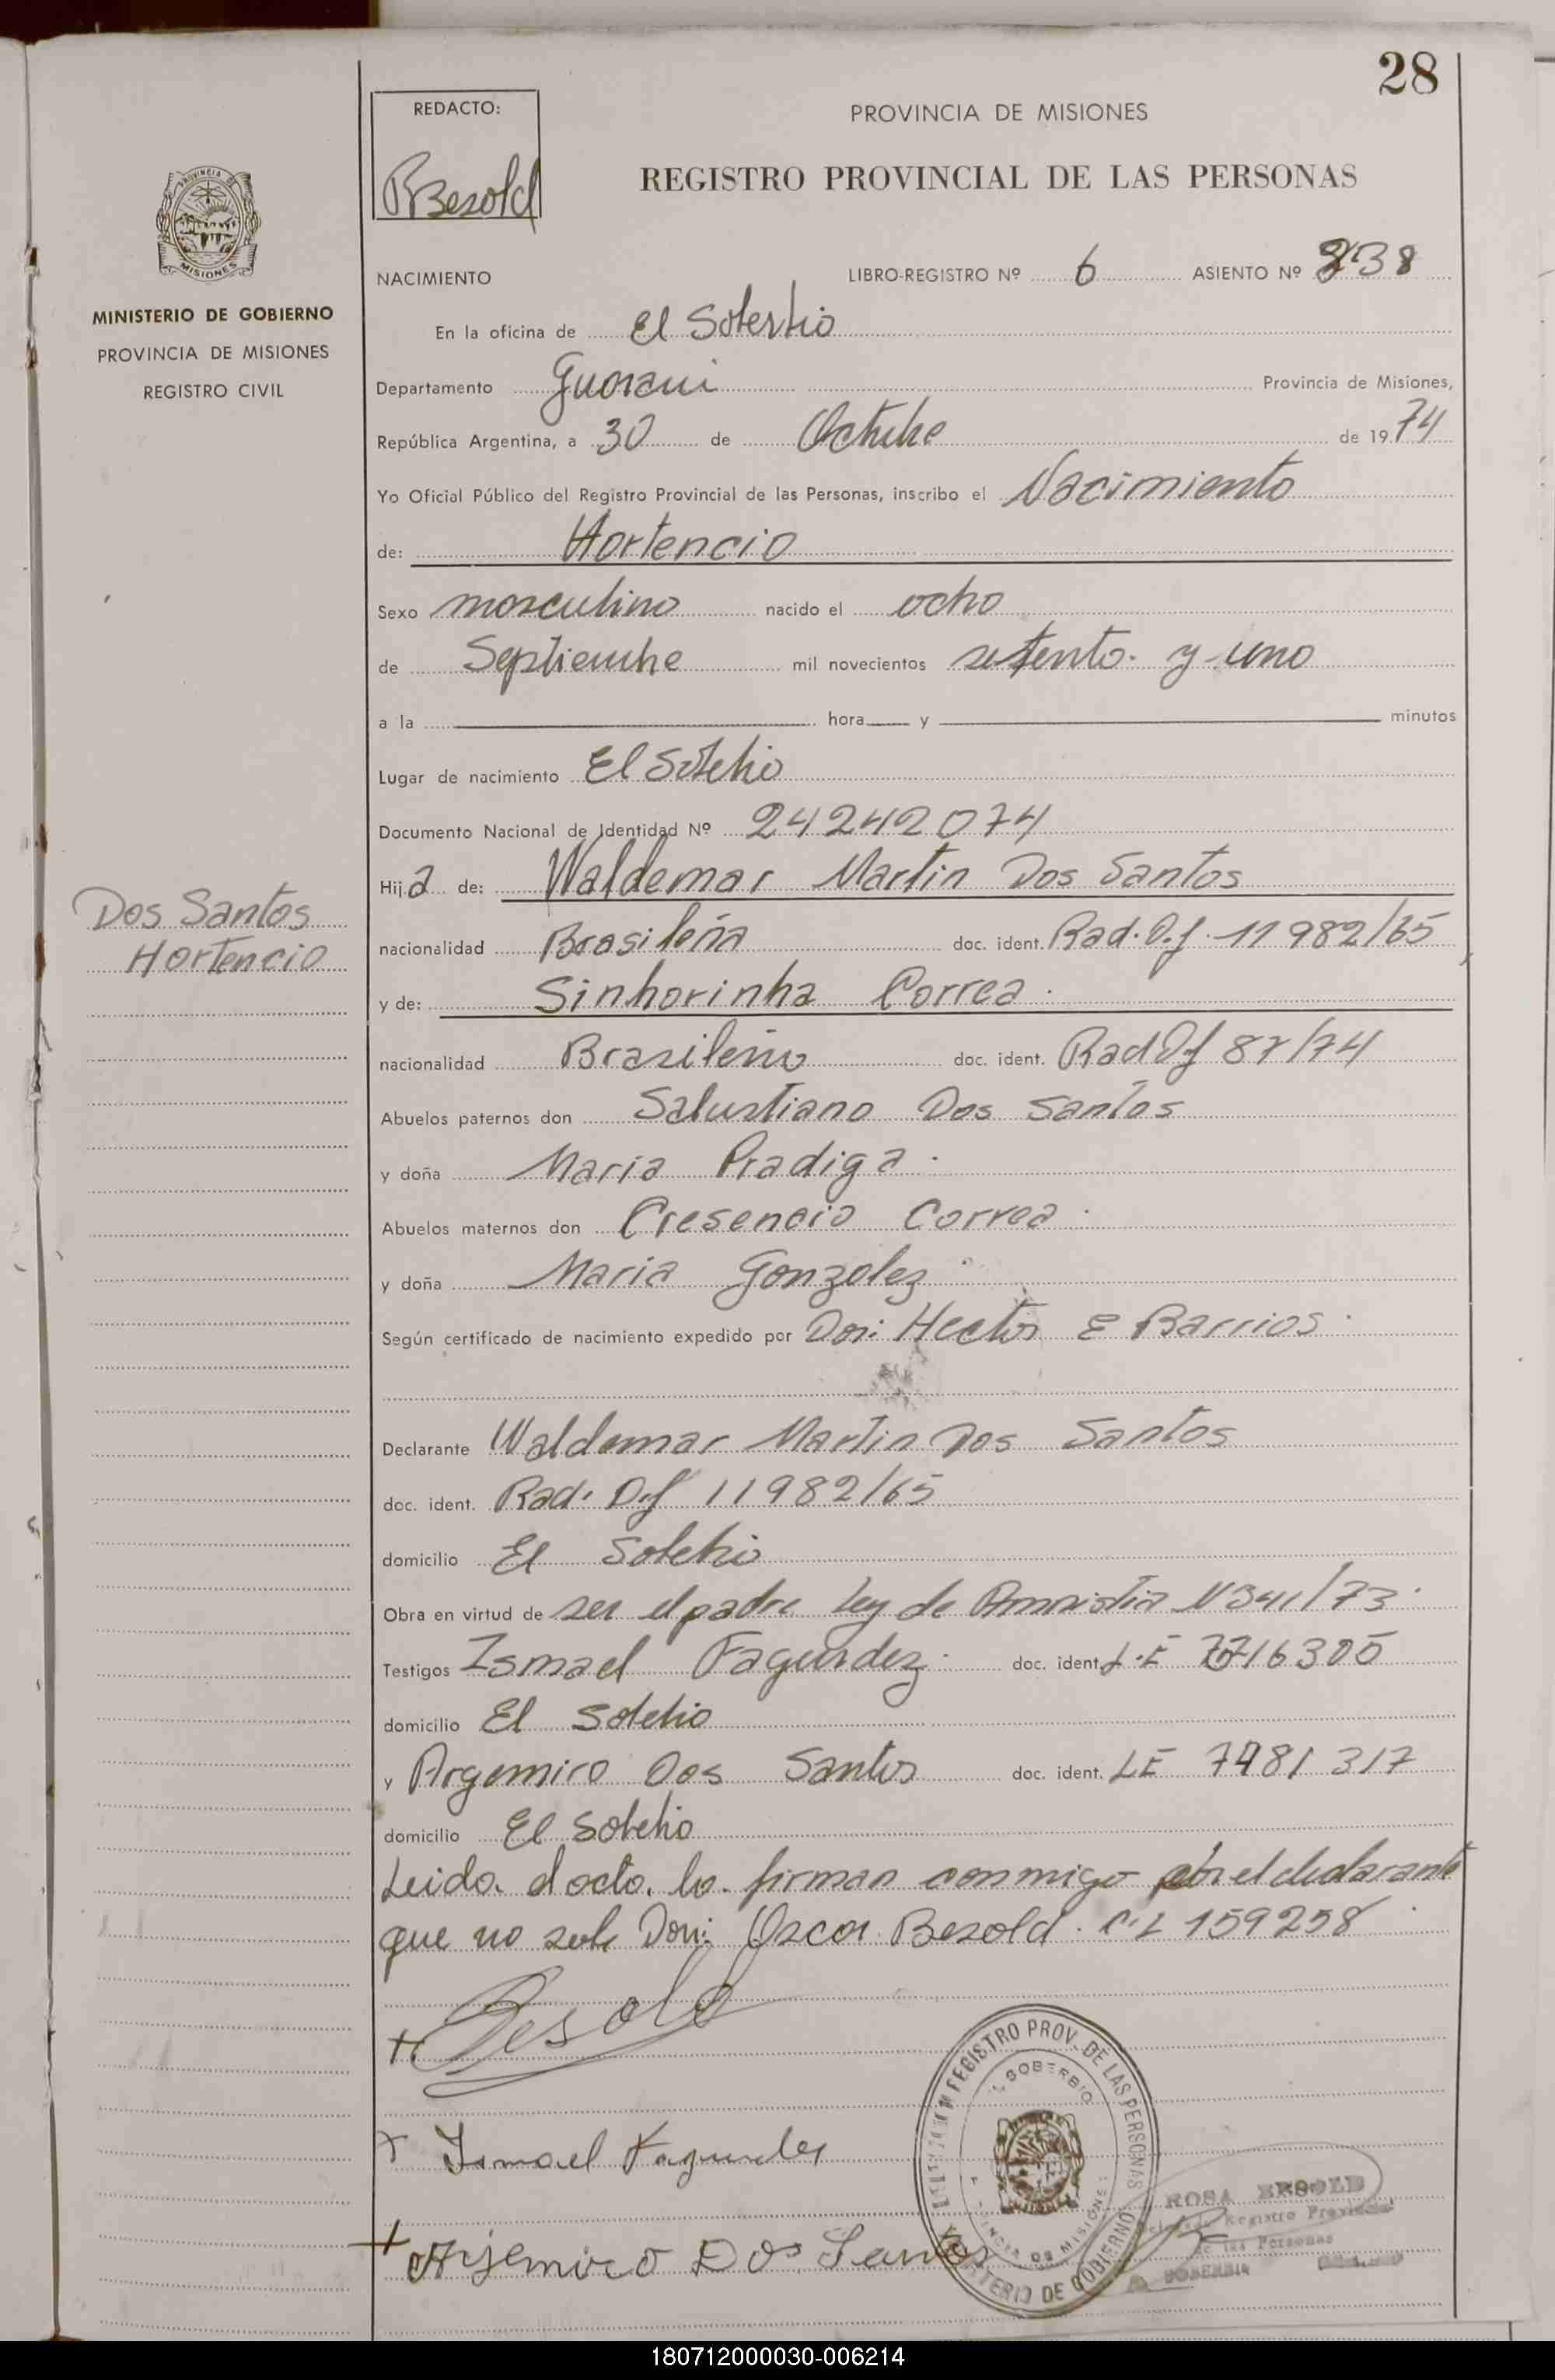 28
REDACTO:
RBesold
PROVINCIA DE MISIONES
REGISTRO PROVINCIAL DE LAS PERSONAS
PROVINCIA DE MISIONES
MINISTERIO DE GOBIERNO
PROVINCIA DE MISIONES
REGISTRO CIVIL
NACIMIENTO LIBRO-REGISTRO Nº 6 ASIENTO Nº 838
En la oficina de El Soberbio
Departamento Guarani Provincia de Misiones,
República Argentina, a 30 de Octubre de 1974
Yo Oficial Público del Registro Provincial de las Personas, inscribo el Nacimiento
de: Hortencio
Sexo masculino nacido el ocho
de Septiembre mil novecientos setenta y uno
a la hora y minutos
Lugar de nacimiento El Soberbio
Documento Nacional de Identidad Nº 24242074
Hija de: Waldemar Martin Dos Santos
Dos Santos
Hortencio
nacionalidad Brasileña doc. ident. Rad. Df. 11982/65
y de: Sinhorinha Correa.
nacionalidad Brasileño doc. ident. Rad Df 87/74
Abuelos paternos don Salustiano Dos Santos
y doña Maria Pradiga.
Abuelos maternos don Cresencio Correa.
y doña Maria Gonzalez
Según certificado de nacimiento expedido por Don: Hector E Barrios.
Declarante Waldemar Martin Dos Santos
doc. ident. Rad. Df 11982/65
domicilio El Soberbio
Obra en virtud de ser el padre Ley de Amnistia N 341/73.
Testigos Ismael Fagundez. doc. ident. L.E 7716305
domicilio El Soberbio
y Argemiro Dos Santos doc. ident. LE 7481317
domicilio El Soberbio
Leida el acta, la firman conmigo por el declarante
que no sabe Don: Oscar Besold. C.I 159258
+ Besold
+ Ismael Fagundes
+ Arjemiro Dos Santos
REGISTRO PROV. DE LAS PERSONAS
SOBERBIO
PROVINCIA DE MISIONES
MINISTERIO DE GOBIERNO
ROSA BESOLD
Registro Provincial
de las Personas
180712000030-006214